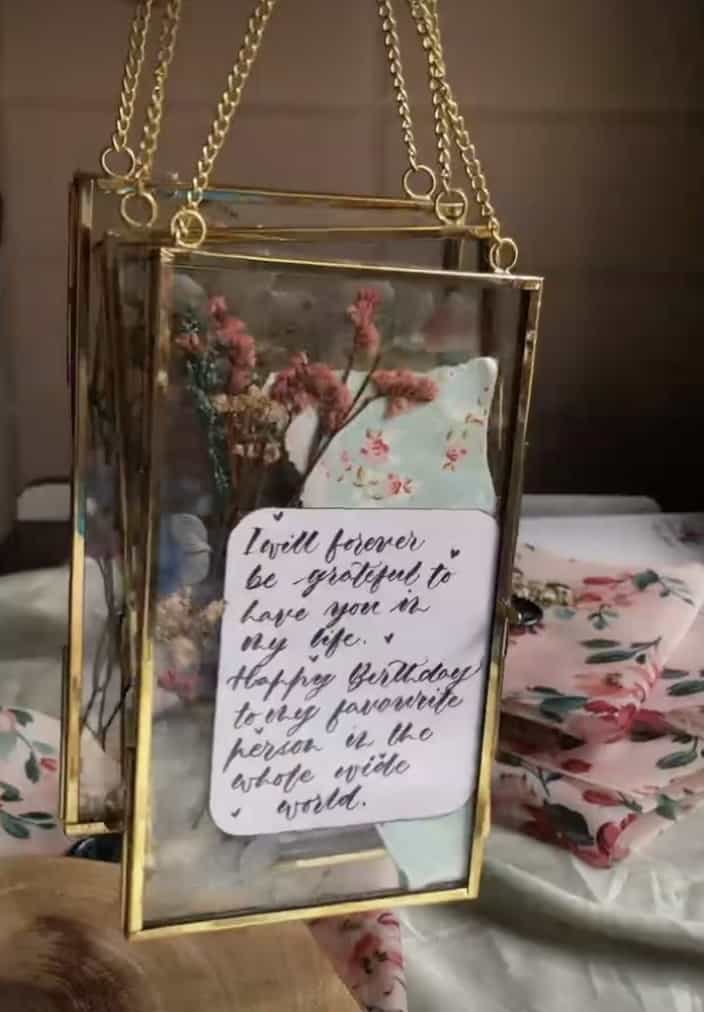 I will forever
be grateful to
have you in
my life.
Happy Birthday
to my favourite
person in the
whole wide
world.